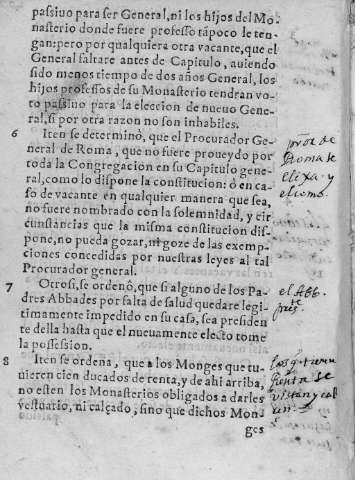 passiuo para ser General, ni los hijos del Mo-
nasterio donde fuere professo tãpoco le ten-
gan: pero por qualquiera otra vacante, que el
General faltare antes de Capitulo, auiendo
sido menos tiempo de dos años General, los
hijos professos de su Monasterio tendran vo-
to passiuo para la eleccion de nueuo Gene-
ral, si por otra razon no son inhabiles.
6 Iten se determinò, que el Procurador Ge-
neral de Roma, que no fuere proueydo por
toda la Congregacion en su Capitulo gene-
ral, como lo dispone la constitucion: ò en ca-
so de vacante en qualquier manera que sea,
no fuere nombrado con la solemnidad, y cir
cunstancias que la misma constitucion dis-
pone, no pueda gozar, ni goze de las exemp-
ciones concedidas por nuestras leyes al tal
Procurador general.
7 Otrosi, se ordenô, que si alguno de los Pa-
dres Abbades por falta de salud quedare legi-
timamente impedido en su casa, sea presiden
te della hasta que el nueuamente electo tome
la possession.
8 Iten se ordena, que a los Monges que tu-
uieren cien ducados de renta, y de ahi arriba,
no esten los Monasterios obligados a darles
vestuario, ni calçado, sino que dichos Mon-
ges
Roma
el Abb.